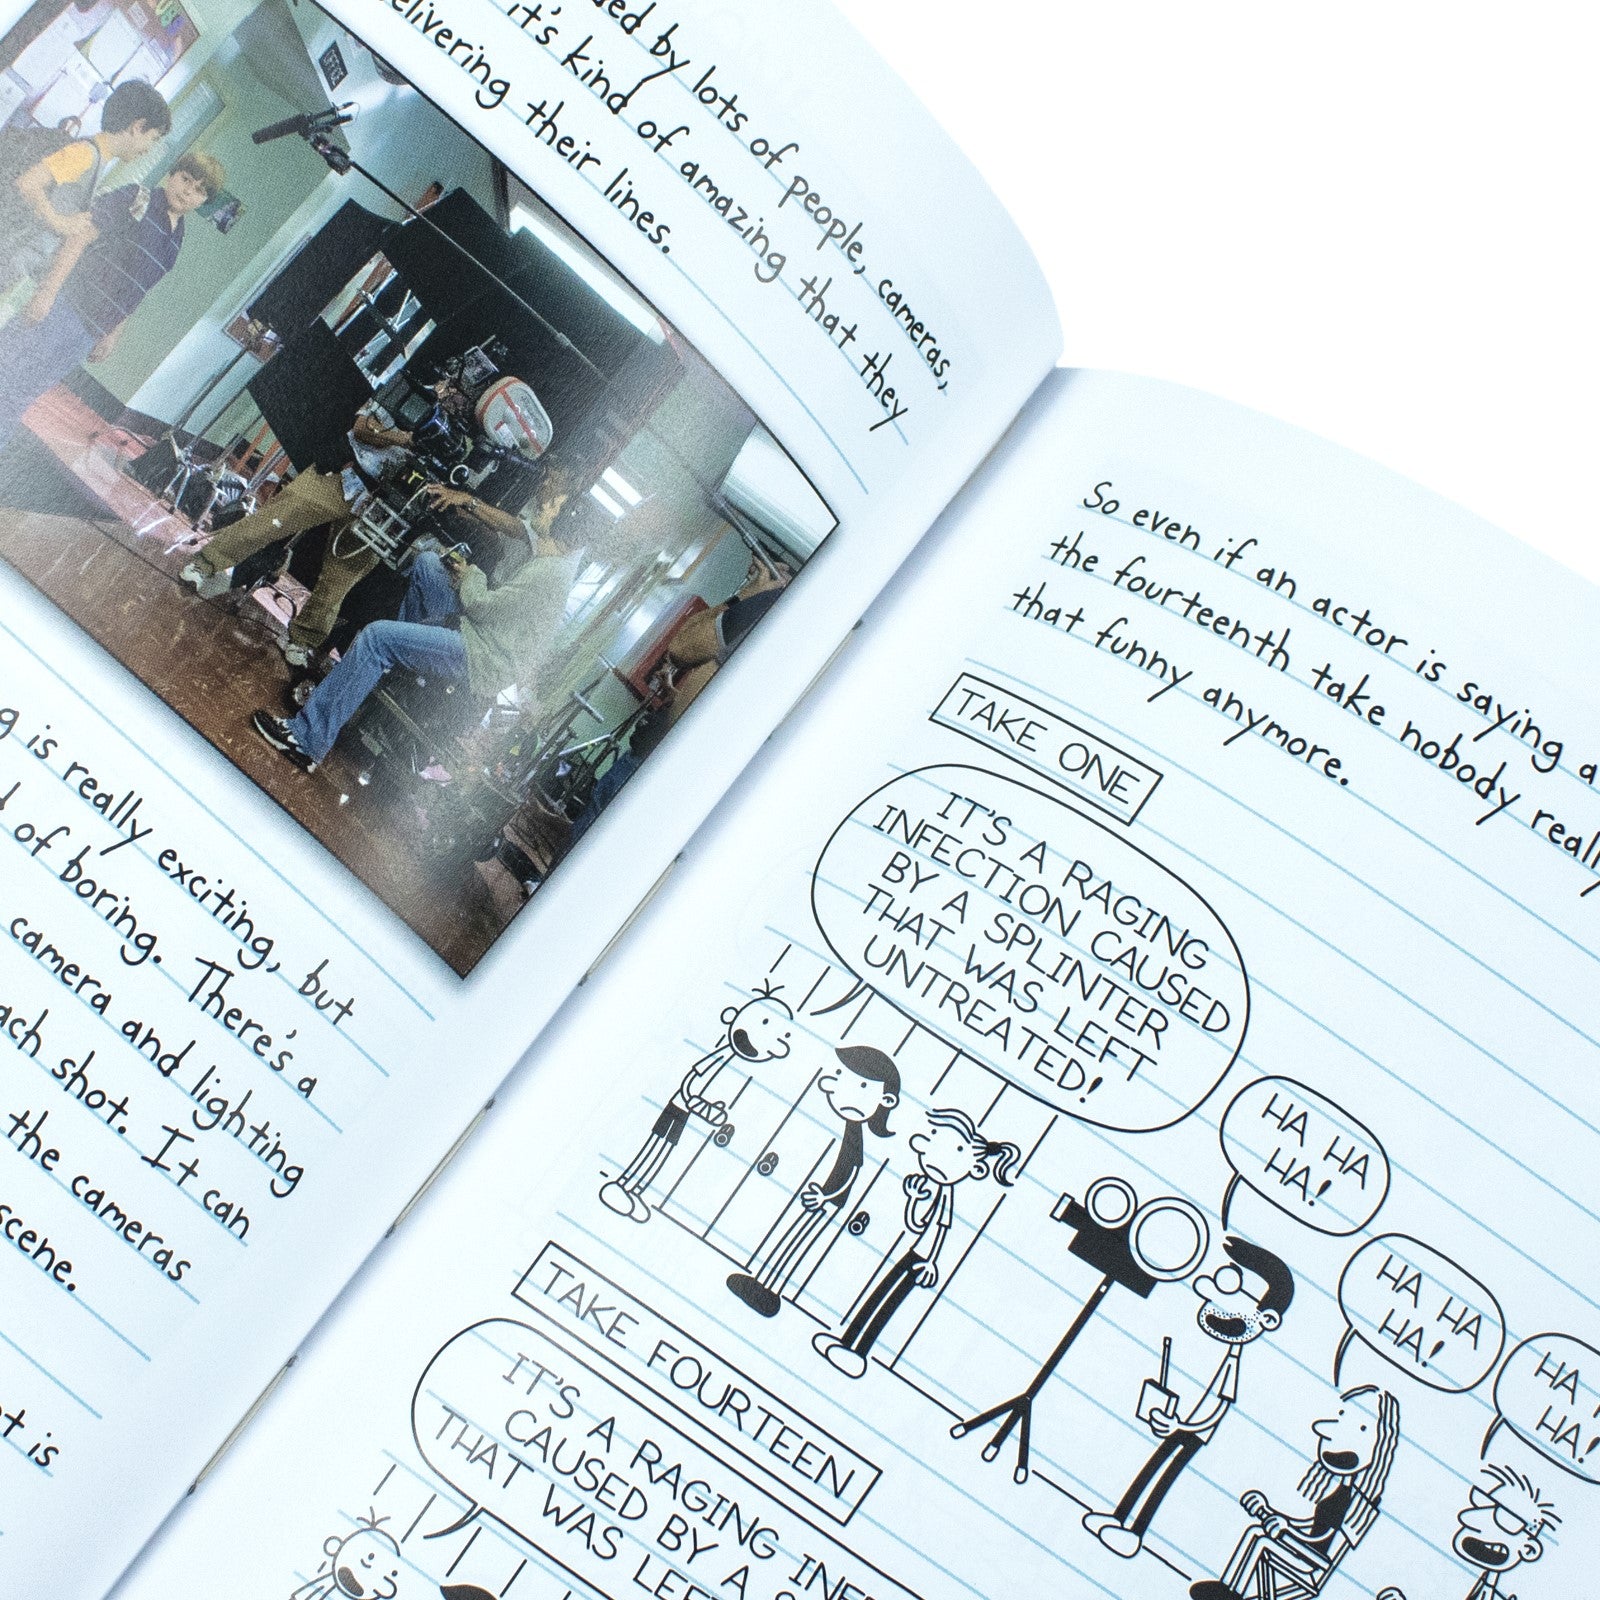 by lots of people, cameras,
it's kind of amazing that they
delivering their lines.
OFFICE
is really exciting, but
of boring. There's a
camera and lighting
shot. It can
the cameras
scene.
is
So even if an actor is saying a
the fourteenth take nobody really
that funny anymore.
TAKE ONE
IT'S A RAGING
INFECTION CAUSED
BY A SPLINTER
THAT WAS LEFT
UNTREATED!
HA HA
HA!
HA HA
HA!
HA
HA!
TAKE FOURTEEN
IT'S A RAGING
CAUSED BY A
THAT WAS